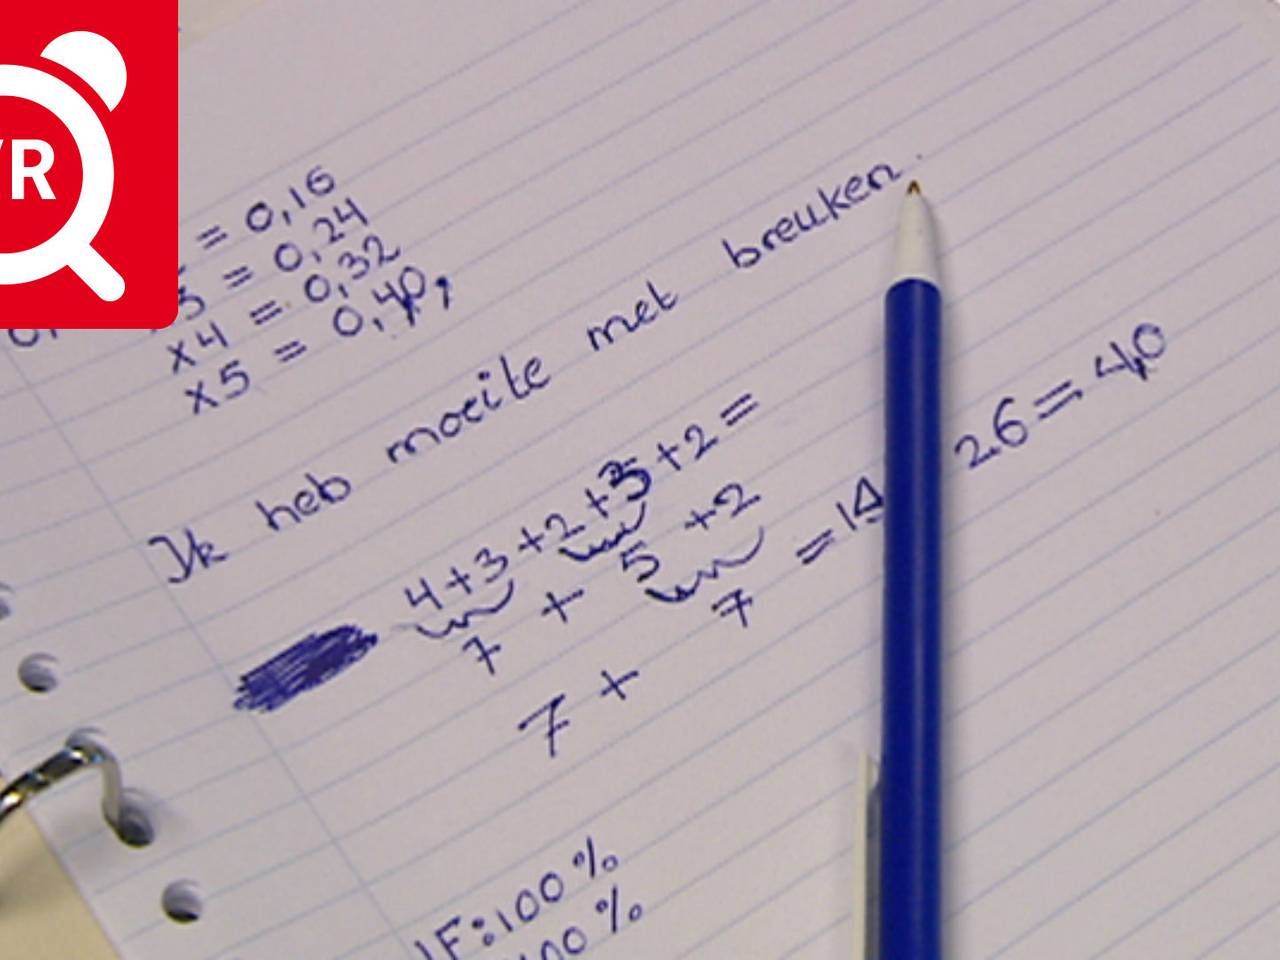 R
= 0,16
3 = 0,24
x4 = 0,32
x5 = 0,40,
Ik heb moeite met breuken.
4+3+2+3+2=
7 + 5 +2
7 + 7 = 14 26 = 40
1F:100%
100%